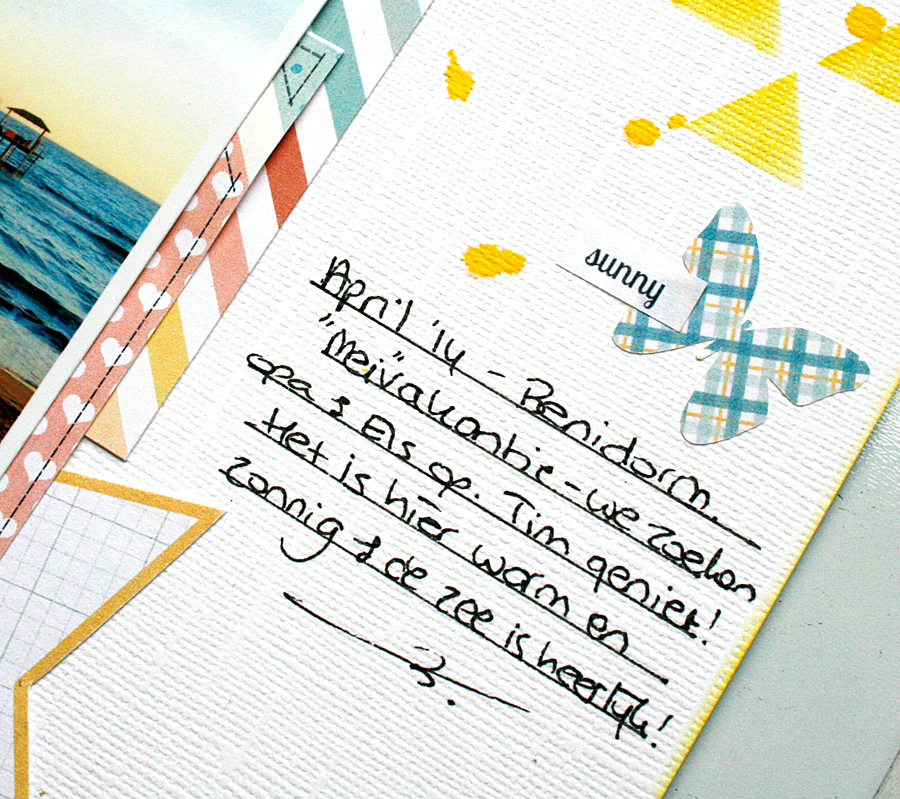 sunny
April '14 - Benidorm.
"Mei"vakantie - we zoeken
opa & Els op. Tim geniet!
Het is hier warm en
zonnig & de zee is heerlijk!